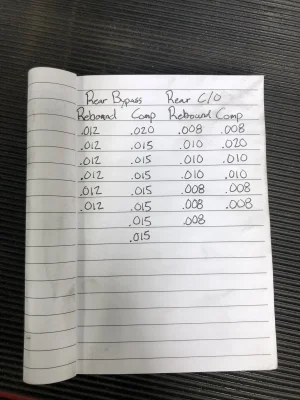 Rear Bypass Rear C/O
Rebound Comp Rebound Comp
.012 .020 .008 .008
.012 .015 .010 .020
.012 .015 .010 .010
.012 .015 .010 .010
.012 .015 .008 .008
.012 .015 .008 .008
.015 .008
.015